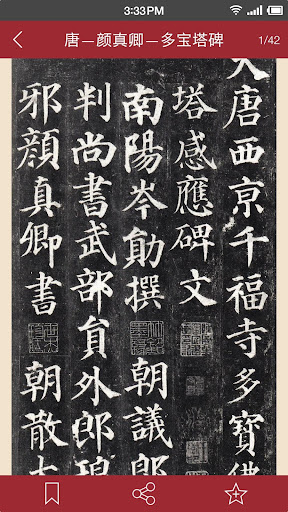 3:33PM
唐—颜真卿—多宝塔碑
1/42
大唐西京千福寺多寶佛
塔感應碑文
南陽岑勛撰 朝議郎
判尚書武部員外郎琅
邪顏真卿書 朝散大